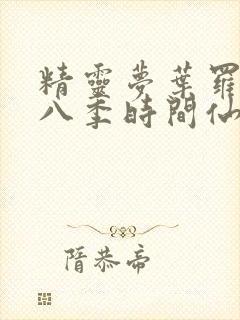 精靈夢葉羅
八季時間仙
隋恭帝